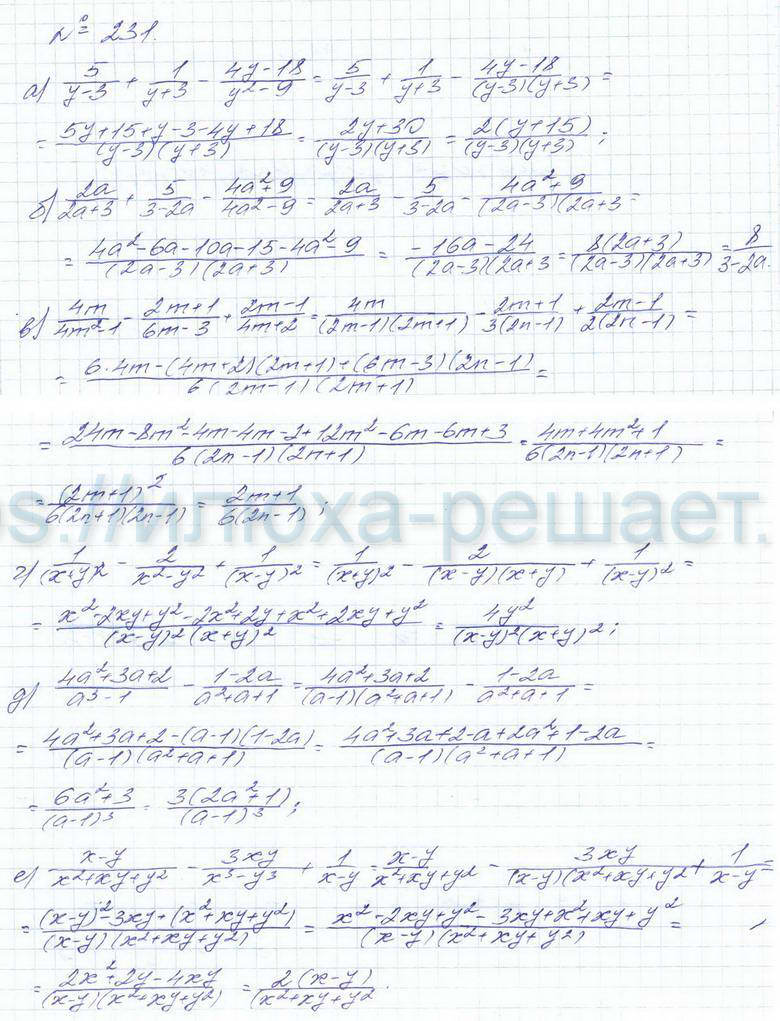 № 231.
а) 5/(y-3) + 1/(y+3) - (4y-18)/(y²-9) = 5/(y-3) + 1/(y+3) - (4y-18)/((y-3)(y+3)) =
= (5y+15+y-3-4y+18)/((y-3)(y+3)) = (2y+30)/((y-3)(y+3)) = 2(y+15)/((y-3)(y+3));
б) 2a/(2a+3) + 5/(3-2a) - (4a²+9)/(4a²-9) = 2a/(2a+3) - 5/(3-2a) - (4a²+9)/((2a-3)(2a+3 =
= (4a²-6a-10a-15-4a²-9)/((2a-3)(2a+3)) = (-16a-24)/((2a-3)(2a+3 = 8(2a+3)/((2a-3)(2a+3)) = 8/(3-2a.
в) 4m/(4m²-1) - (2m+1)/(6m-3) + (2m-1)/(4m+2) = 4m/((2m-1)(2m+1)) - (2m+1)/(3(2n-1)) + (2m-1)/(2(2n-1)) =
= (6·4m-(4m+2)(2m+1)+(6m-3)(2n-1))/(6(2m-1)(2m+1)) =
= (24m-8m²-4m-4m-2+12m²-6m-6m+3)/(6(2n-1)(2n+1)) = (4m+4m²+1)/(6(2n-1)(2n+1)) =
s://илюха-решает.
= (2m+1)²/(6(2n+1)(2n-1)) = (2m+1)/(6(2n-1));
г) 1/(x+y)² - 2/(x²-y²) + 1/(x-y)² = 1/(x+y)² - 2/((x-y)(x+y)) + 1/(x-y)² =
= (x²-2xy+y²-2x²+2y+x²+2xy+y²)/((x-y)²(x+y)²) = 4y²/((x-y)²(x+y)²);
д) (4a²+3a+2)/(a³-1) - (1-2a)/(a²+a+1) = (4a²+3a+2)/((a-1)(a²+a+1)) - (1-2a)/(a²+a+1) =
= (4a²+3a+2-(a-1)(1-2a))/((a-1)(a²+a+1)) = (4a²+3a+2-a+2a²+1-2a)/((a-1)(a²+a+1)) =
= (6a²+3)/(a-1)³ = 3(2a²+1)/(a-1)³;
е) (x-y)/(x²+xy+y²) - 3xy/(x³-y³) + 1/(x-y) = (x-y)/(x²+xy+y²) - 3xy/((x-y)(x²+xy+y²) + 1/(x-y) =
= ((x-y)²-3xy+(x²+xy+y²))/((x-y)(x²+xy+y²)) = (x²-2xy+y²-3xy+x²+xy+y²)/((x-y)(x²+xy+y²)) =
= (2x²+2y-4xy)/((x-y)(x²+xy+y²)) = 2(x-y)/(x²+xy+y².